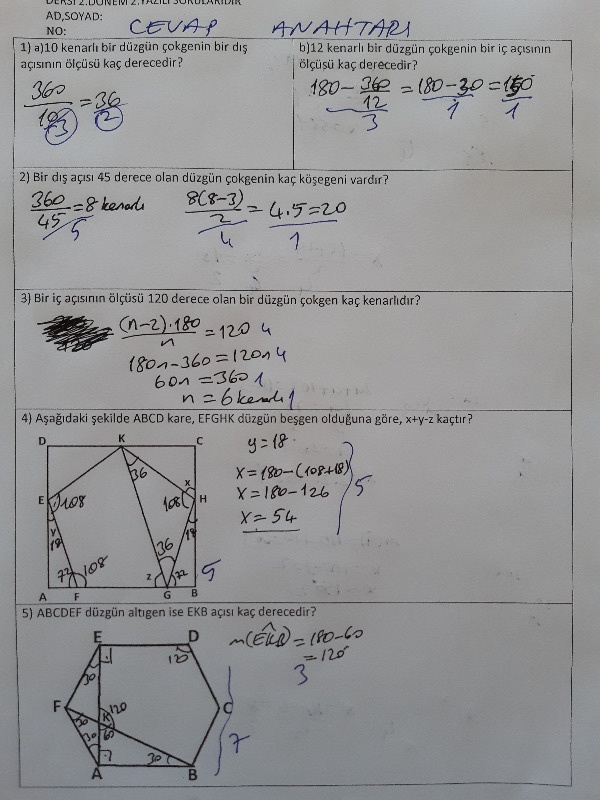 DERSİ 2.DÖNEM 2.YAZILI SORULARIDIR
AD,SOYAD: CEVAP ANAHTARI
NO:
1) a)10 kenarlı bir düzgün çokgenin bir dış
açısının ölçüsü kaç derecedir?
360/10 = 36
3 2
b)12 kenarlı bir düzgün çokgenin bir iç açısının
ölçüsü kaç derecedir?
180 - 360/12 = 180 - 30 = 150
3 1 1
2) Bir dış açısı 45 derece olan düzgün çokgenin kaç köşegeni vardır?
360/45 = 8 kenarlı 8(8-3)/2 = 4.5 = 20
5 4 1
3) Bir iç açısının ölçüsü 120 derece olan bir düzgün çokgen kaç kenarlıdır?
(n-2).180/n = 120 4
180n-360=120n 4
60n = 360 1
n = 6 kenarlı 1
4) Aşağıdaki şekilde ABCD kare, EFGHK düzgün beşgen olduğuna göre, x+y-z kaçtır?
D K C
y = 18
36
x = 180-(108+18)
x
E 108 108 H
x = 180-126
5
x = 54
y
18 18
36
72 108 z 72
5
A F G B
5) ABCDEF düzgün altıgen ise EKB açısı kaç derecedir?
E D
m(EKB) = 180-60
120
= 120
30
3
F K 120 C
30 60
30
7
30
A B